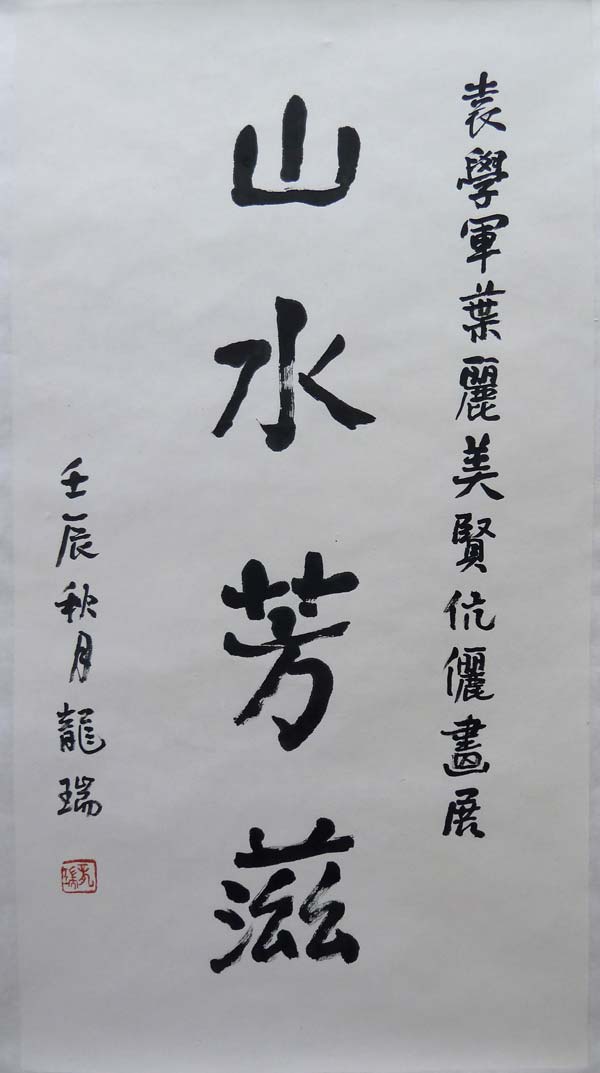 袁學軍葉麗美賢伉儷畫展
山水芳滋
壬辰秋月龍瑞